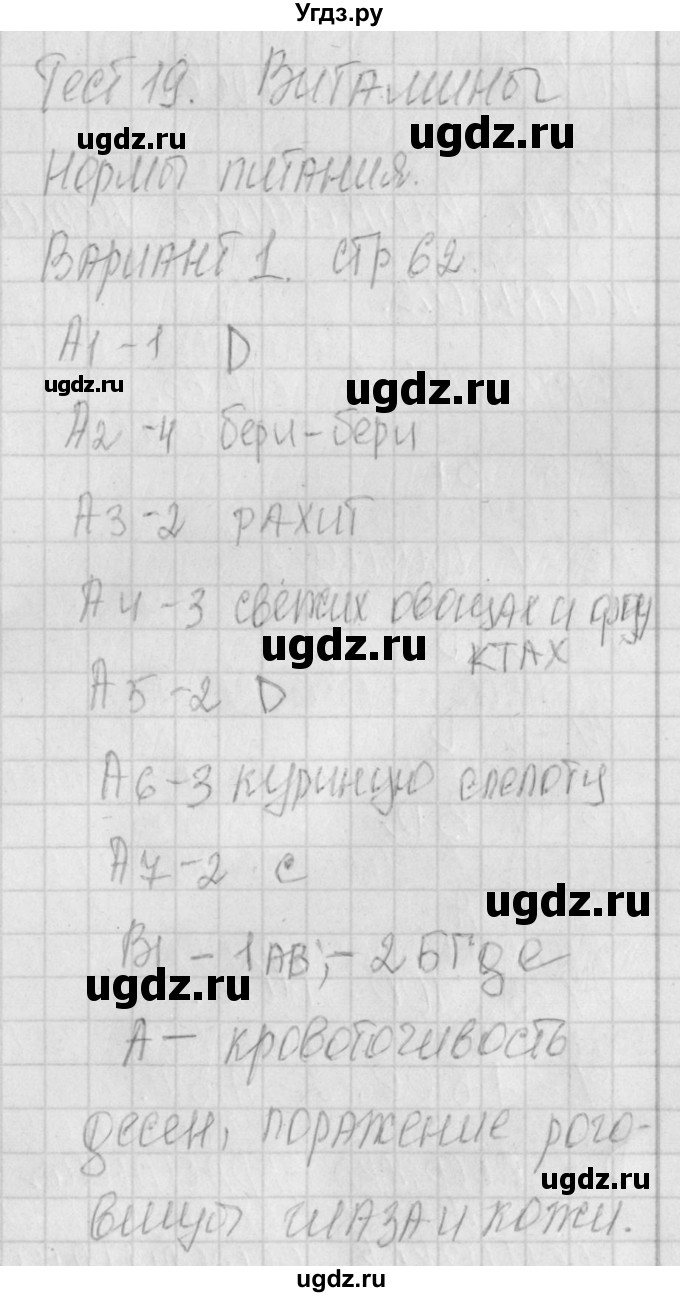 Угдз.ру
Тест 19. Витамины
ugdz.ru ugdz.ru
Нормы питания.
Вариант 1. стр 62.
А1 - 1 D
ugdz.ru ugdz.ru
А2 - 4 бери-бери
А3 - 2 рахит
А4 - 3 свежих овощах и фру
ктах
ugdz.ru
А5 - 2 D
А6 - 3 куриную слепоту
А7 - 2 с
ugdz.ru
В1 - 1АВ; - 2БГде
ugdz.ru
А - кровоточивость
десен, поражение рого-
ugdz.ru
вицы глаза и кожи.
ugdz.ru
ugdz.ru